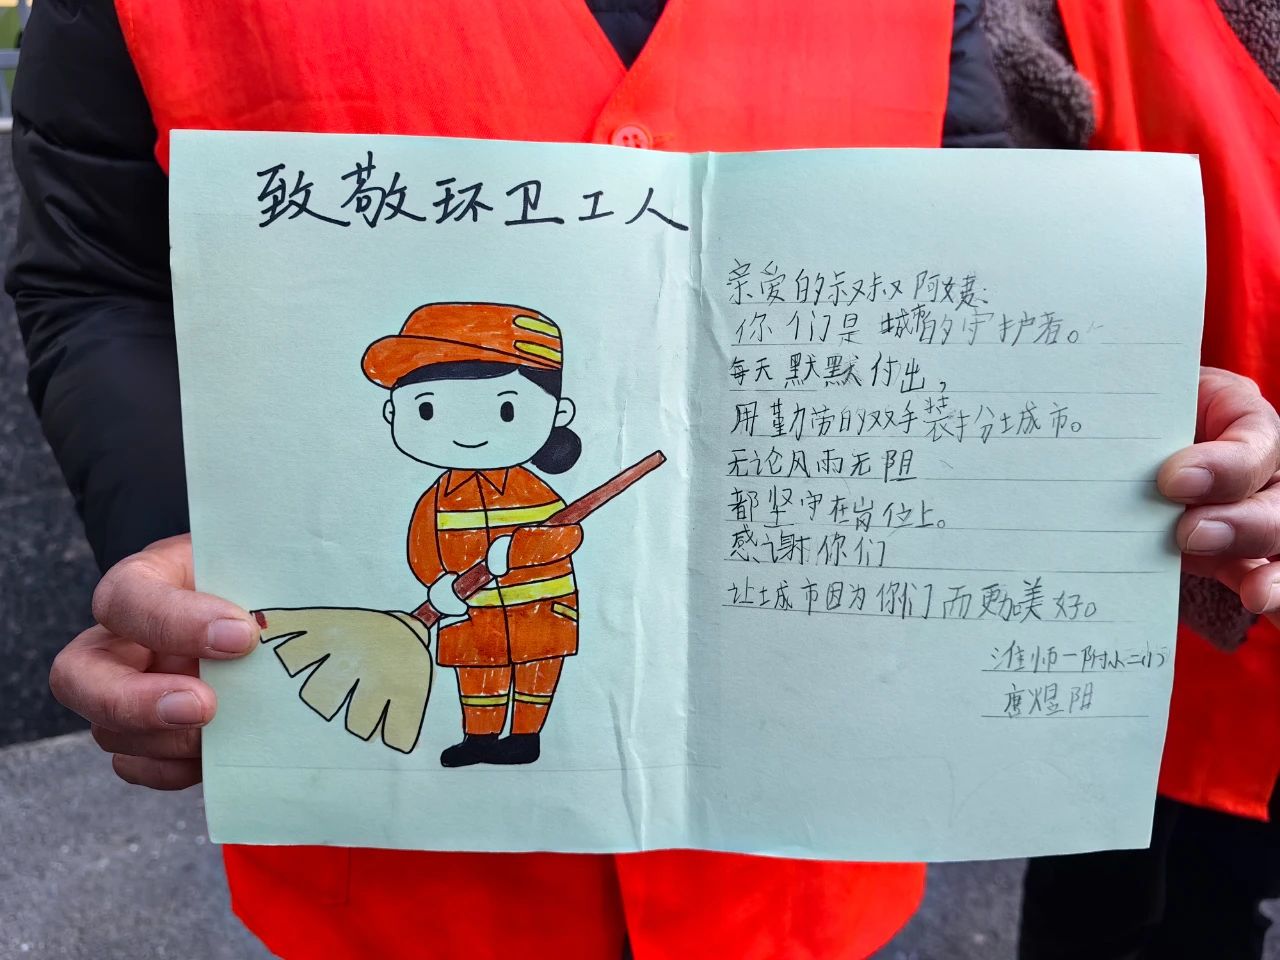 致敬环卫工人
亲爱的叔叔阿姨:
你们是城市的守护者。
每天默默付出,
用勤劳的双手装扮城市。
无论风雨无阻
都坚守在岗位上。
感谢你们
让城市因为你们而更加美好。
淮师一附小二(1)
唐煜阳